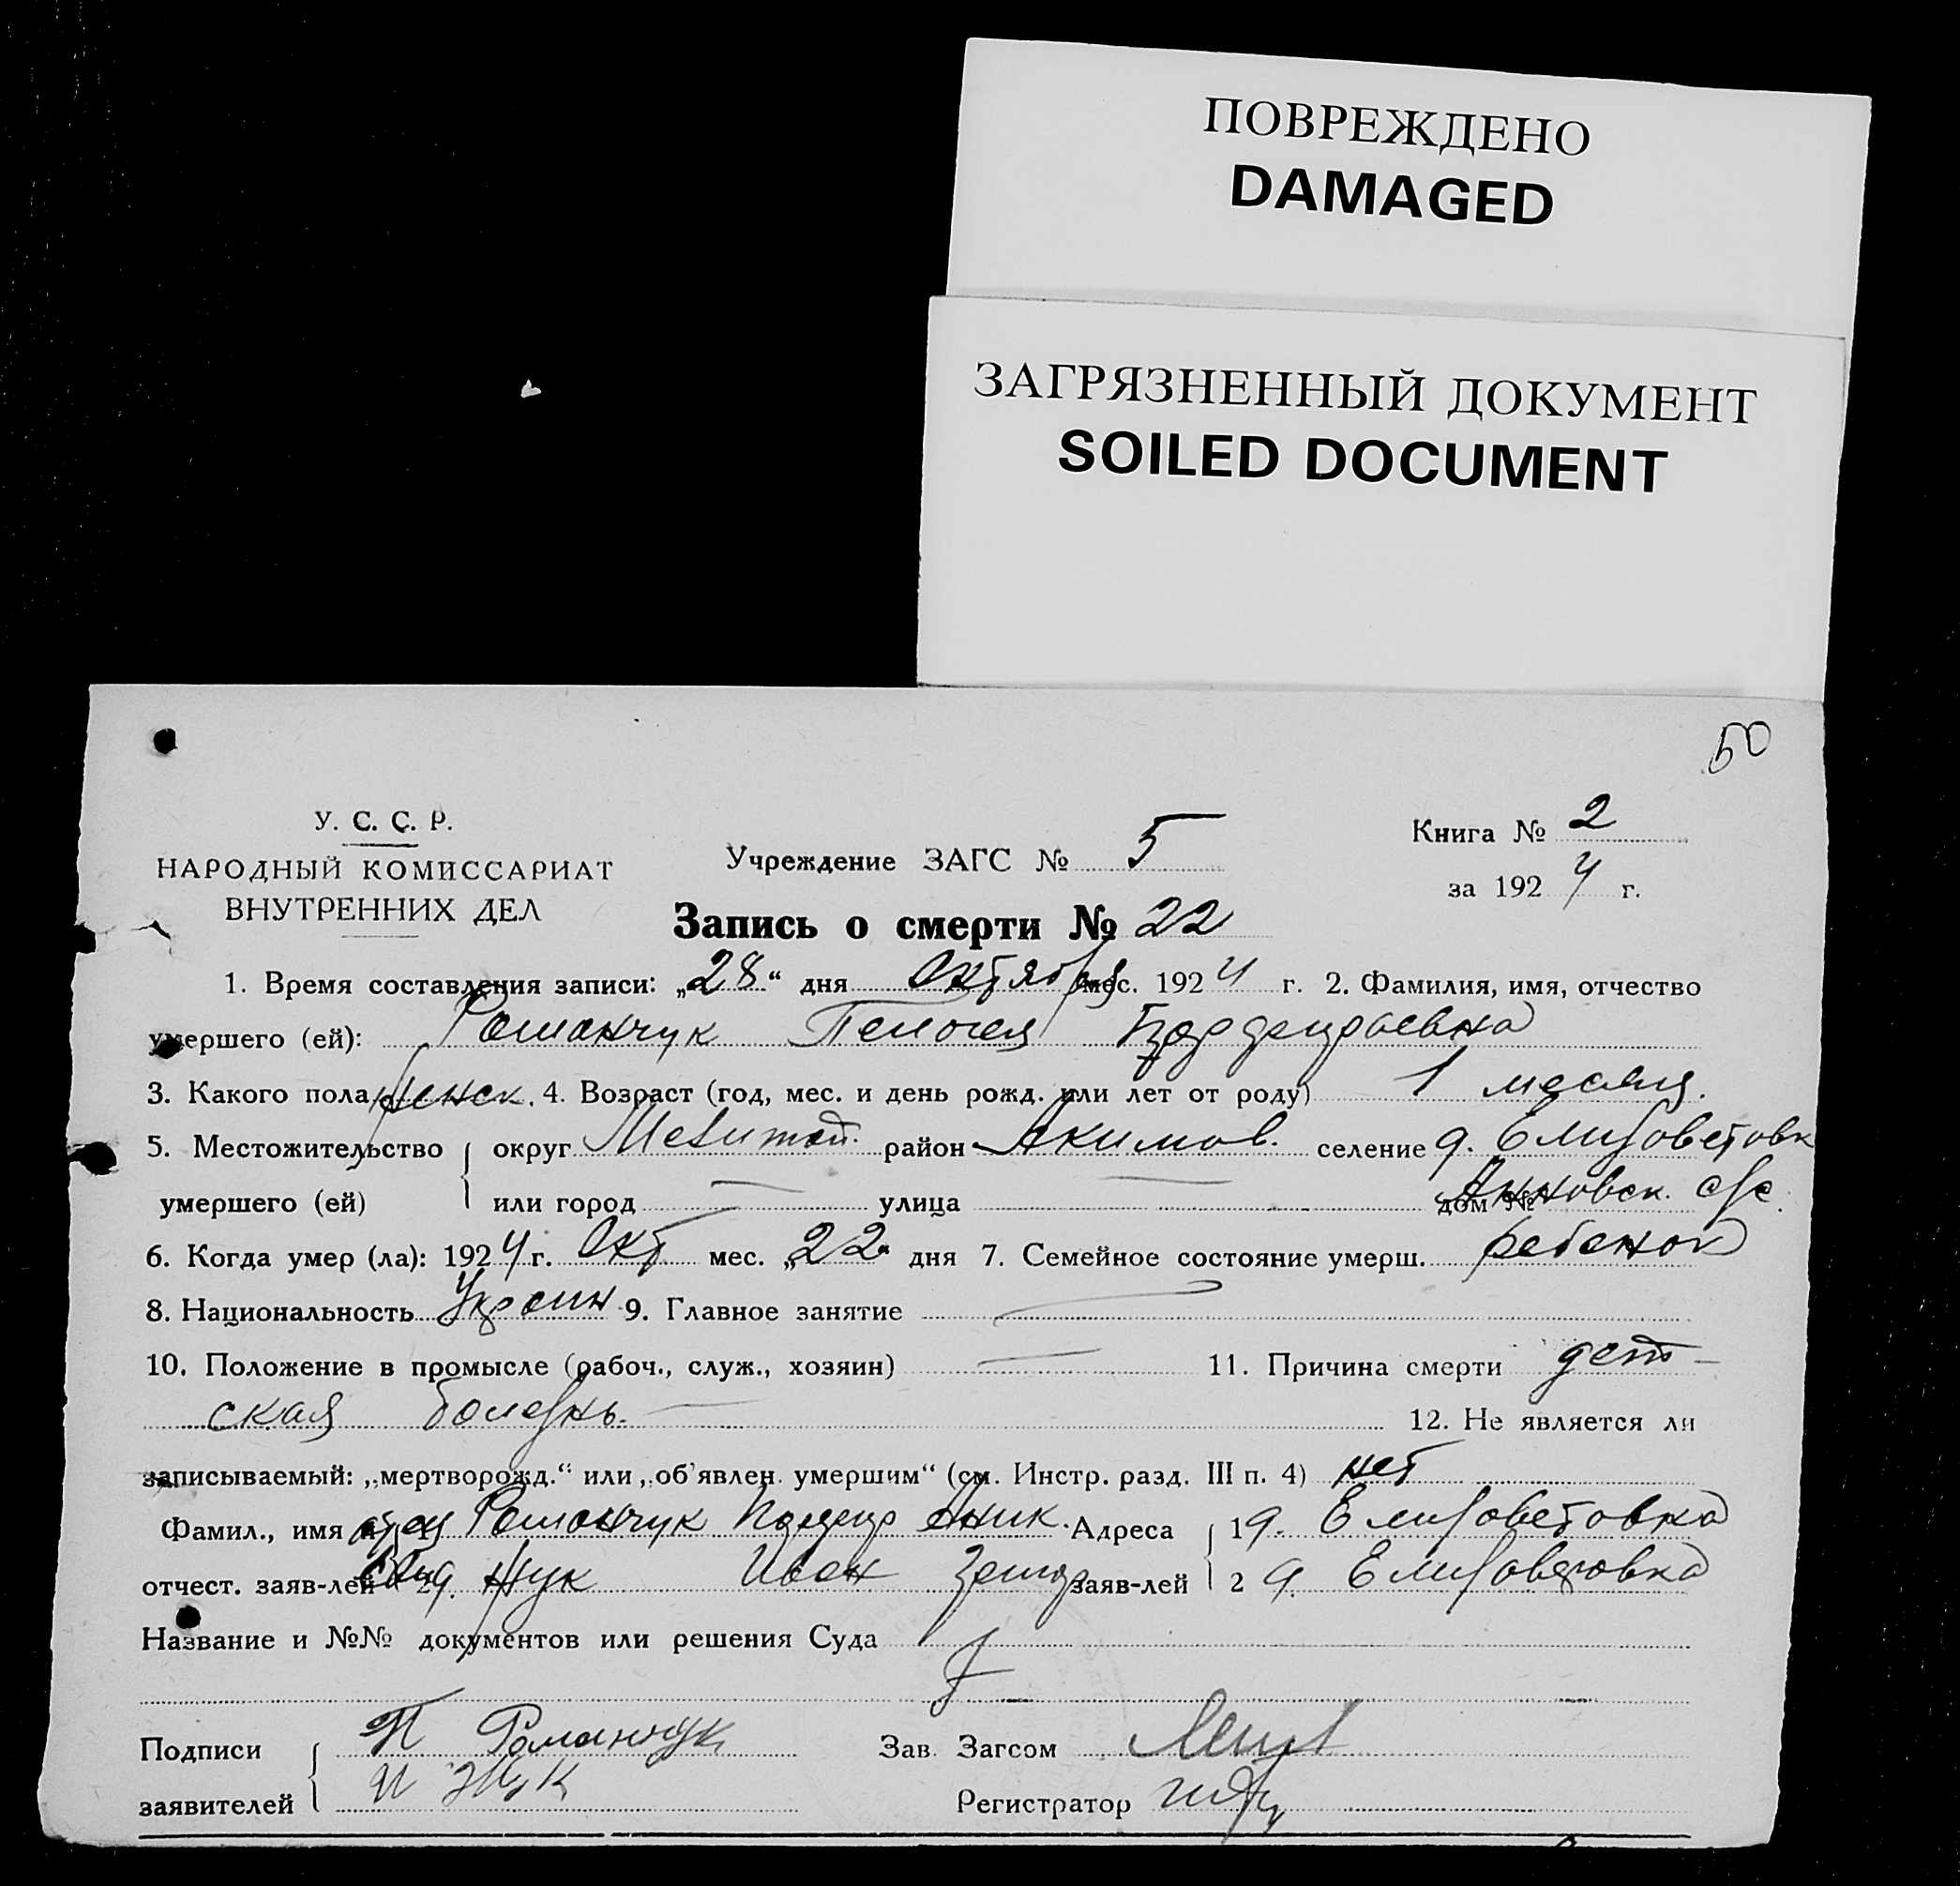 ПОВРЕЖДЕНО
DAMAGED
ЗАГРЯЗНЕННЫЙ ДОКУМЕНТ
SOILED DOCUMENT
50
У. С. С. Р.
НАРОДНЫЙ КОМИССАРИАТ
ВНУТРЕННИХ ДЕЛ
Учреждение ЗАГС № 5
Книга № 2
за 1924 г.
Запись о смерти № 22
1. Время составления записи: „28“ дня Октября мес. 1924 г. 2. Фамилия, имя, отчество
умершего (ей): Романчук Пелогея
3. Какого пола женск. 4. Возраст (год, мес. и день рожд. или лет от роду) 1 месяц.
5. Местожительство округ Мелитоп. район Акимов. селение д. Елизоветовк
умершего (ей) или город — улица — дом № Анновск. с/с
6. Когда умер (ла): 1924 г. Окт. мес. „22“ дня 7. Семейное состояние умерш. ребенок
8. Национальность Украин 9. Главное занятие —
10. Положение в промысле (рабоч., служ., хозяин) — 11. Причина смерти дет-
ская болезнь. —
12. Не является ли
записываемый: „мертворожд.“ или „об'явлен. умершим“ (см. Инстр. разд. III п. 4) нет
Фамил., имя отец Романчук Аник. Адреса 1 д. Елизоветовка
отчест. заяв-лей 2 Жук Иван заяв-лей 2 д. Елизоветовка
Название и №№ документов или решения Суда
Подписи П Романчук Зав. Загсом
заявителей И Жук Регистратор